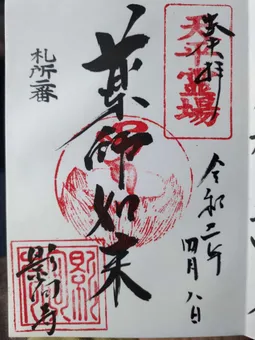 奉拝
天平霊場
札所一番
薬師如来
令和二年
四月八日
影向寺